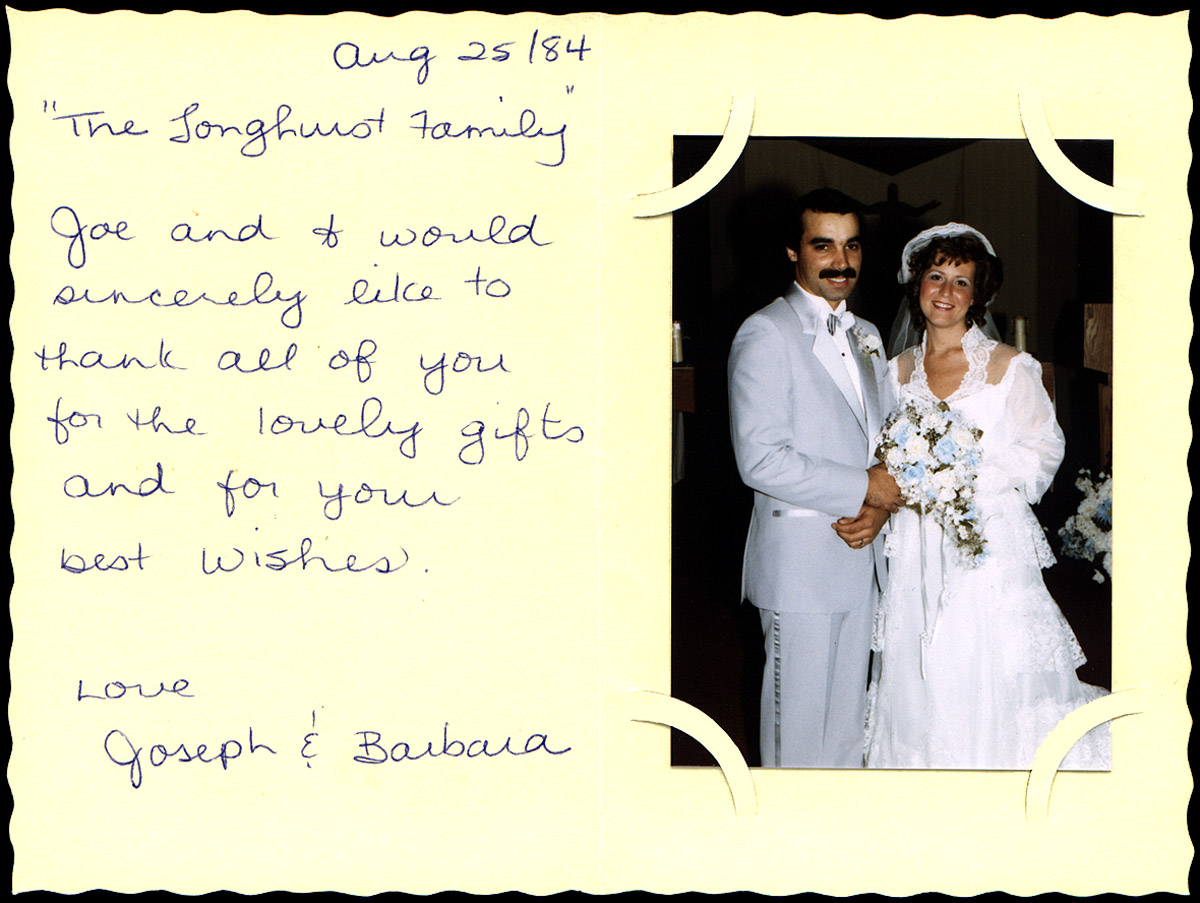 Aug 25/84
"The Longhurst Family"
Joe and I would
sincerely like to
thank all of you
for the lovely gifts
and for your
best wishes.
Love
Joseph & Barbara